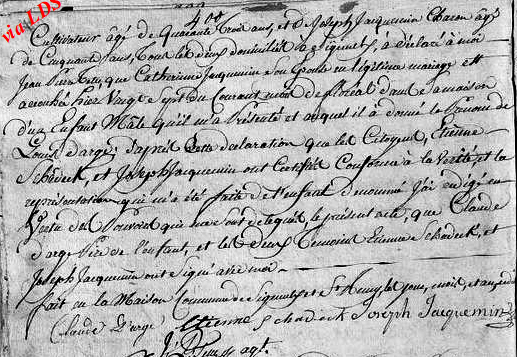 via LDS
Cultivateur âgé de quarante trois ans, et de Joseph Jacquemin Charon âgé
de Cinquante ans, tous les deux domiciliés à Signeulx, à déclaré à moi
Jean Pierre que Catherine Jacquemin son Epouse en légitime mariage est
accouchée hier Vingt sept du Courant mois de floréal dans sa maison
d'un Enfant Mâle qu'il m'a Présenté et auquel il a donné le Prénom de
Louis d'argé; d'après Cette déclaration que les Citoyens Etienne
Schadeck, et Joseph Jacquemin ont Certifié Conforme à la Vérité, et la
représentation qui m'a été faite de l'enfant dénommé j'ai rédigé en
Vertu des Pouvoirs qui me sont délégués, le présent acte, que Claude
d'argé Père de l'enfant, et les deux témoins Etienne Schadeck, et
Joseph Jacquemin ont signé avec moi
fait en la Maison Commune de Signeulx et St Remy, les jour, mois, et an,
Claude D'argé Etienne Schadeck Joseph Jacquemin
agt.